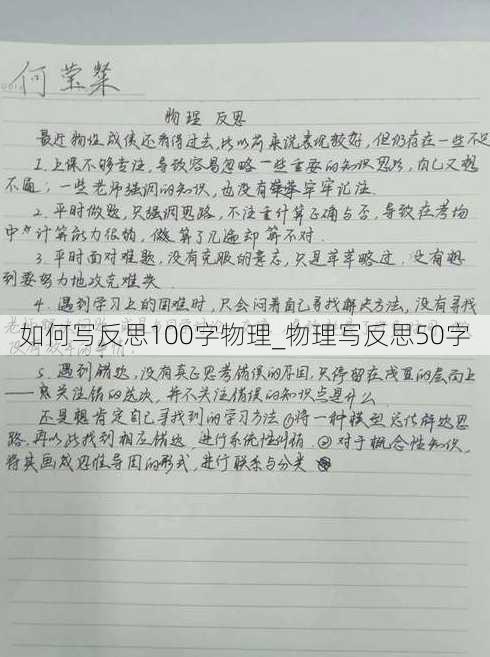 何莹粲
物理 反思
最近物理成绩还看得过去,比以前来说表现较好,但仍存在一些不足
1.上课不够专注,导致容易忽略一些重要的知识思路,自己又想
不通;一些老师强调的知识,也没有牢牢记住.
2.平时做题,只强调思路,不注重计算正确与否,导致在考场
中"计算能力很弱,做算了几遍却算不对.
3.平时面对难题,没有克服的意志,只是草草略过,没有想
到要努力地攻克难关
4.遇到学习上的困难时,只会闷着自己寻找解决方法,没有寻找
如何写反思100字物理_物理写反思50字
5.遇到错题,没有真正思考错误的原因,只停留在浅显的层面上
——只关注错的题次,并不关注错误的知识点是什么
还是想肯定自己寻找到的学习方法①将一种模型总结解题思
路,再以此找到相应错题,进行系统性纠错.②对于概念性知识,
将其画成思维导图的形式,进行联系与分类